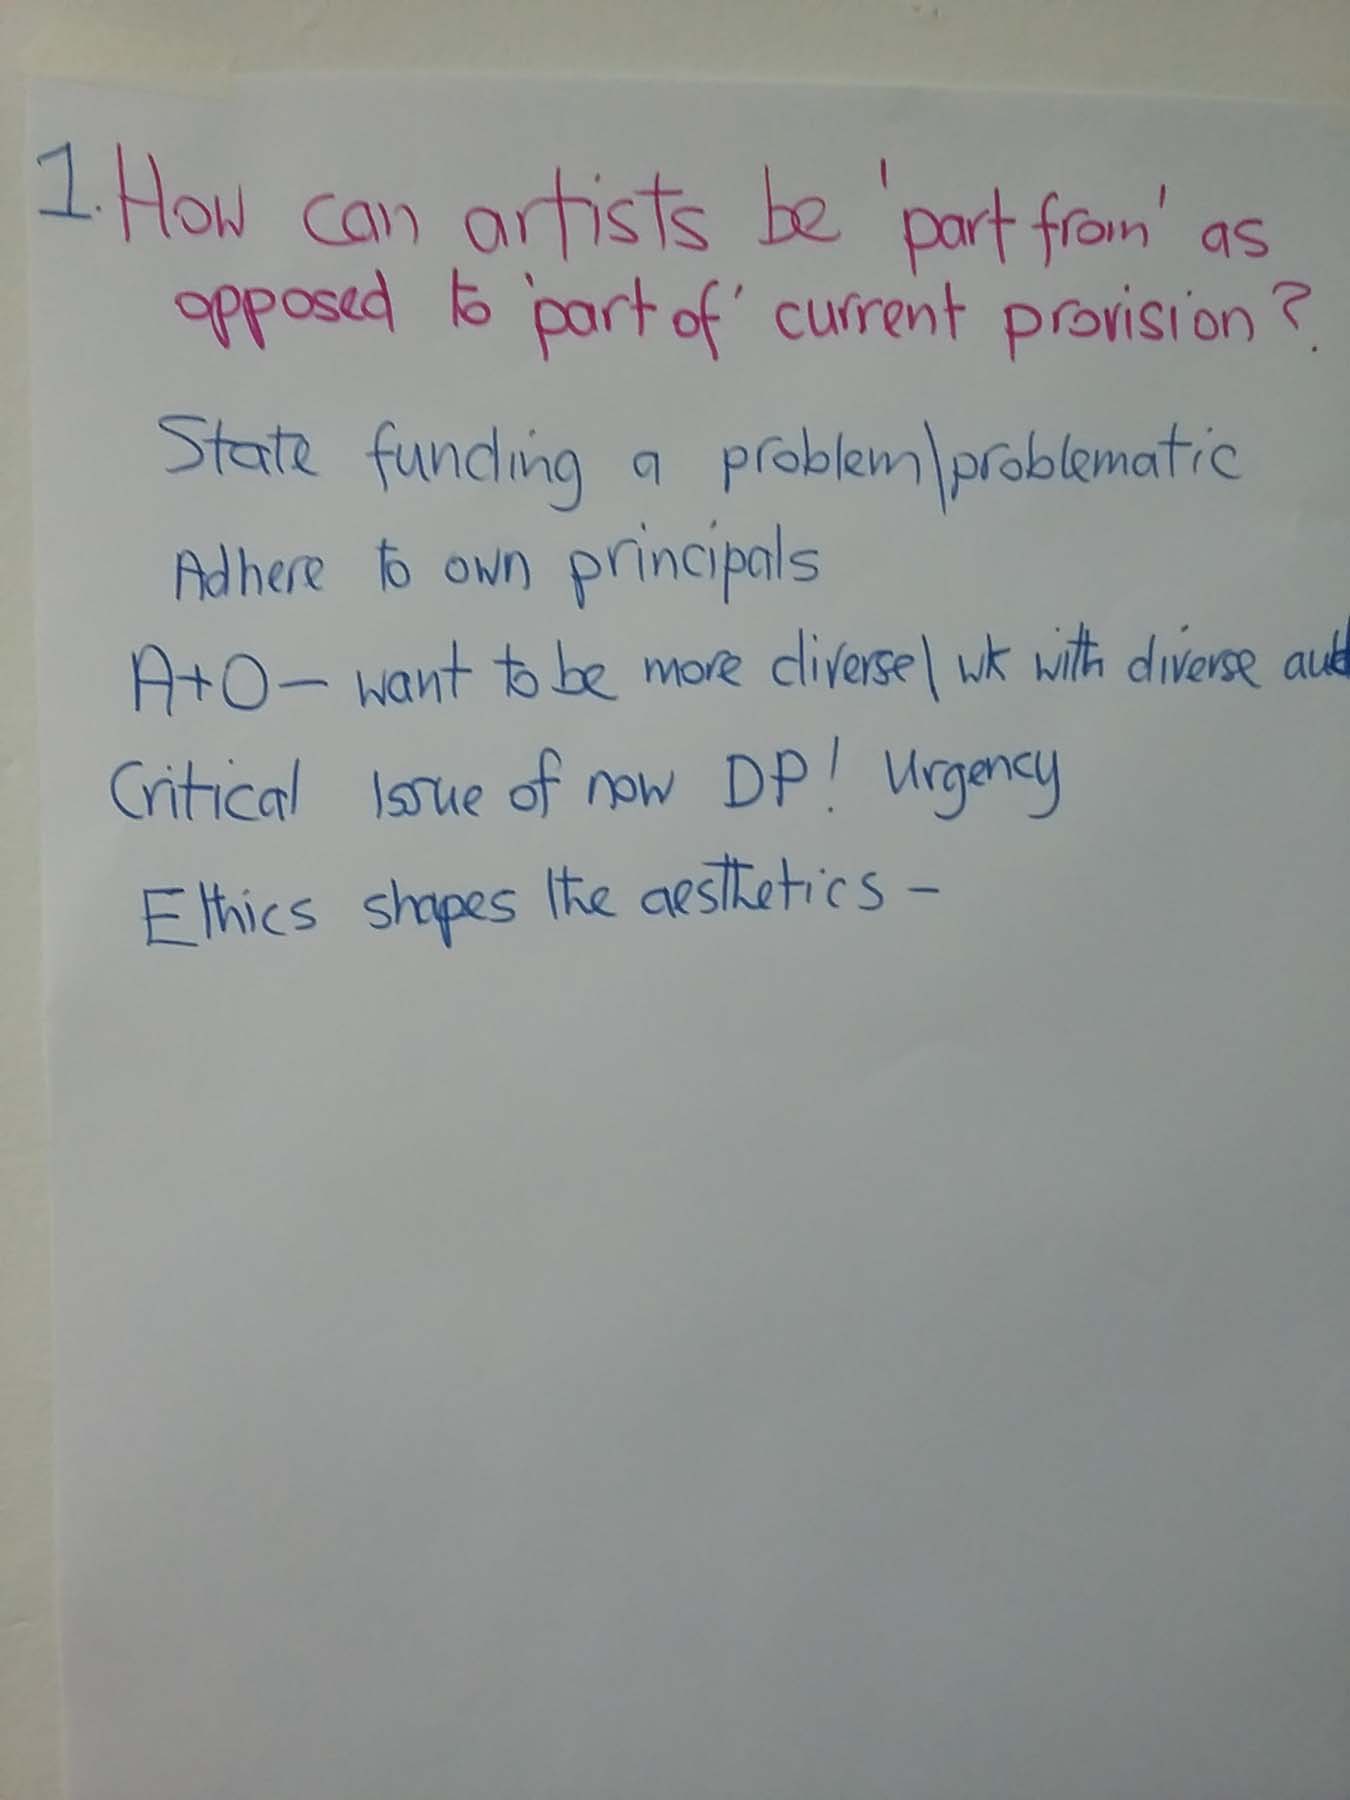 1. How can artists be 'part from' as
opposed to 'part of' current provision?
State funding a problem\problematic
Adhere to own principals
A+O — want to be more diverse\ wk with diverse aud
Critical Issue of now DP! Urgency
Ethics shapes the aesthetics –